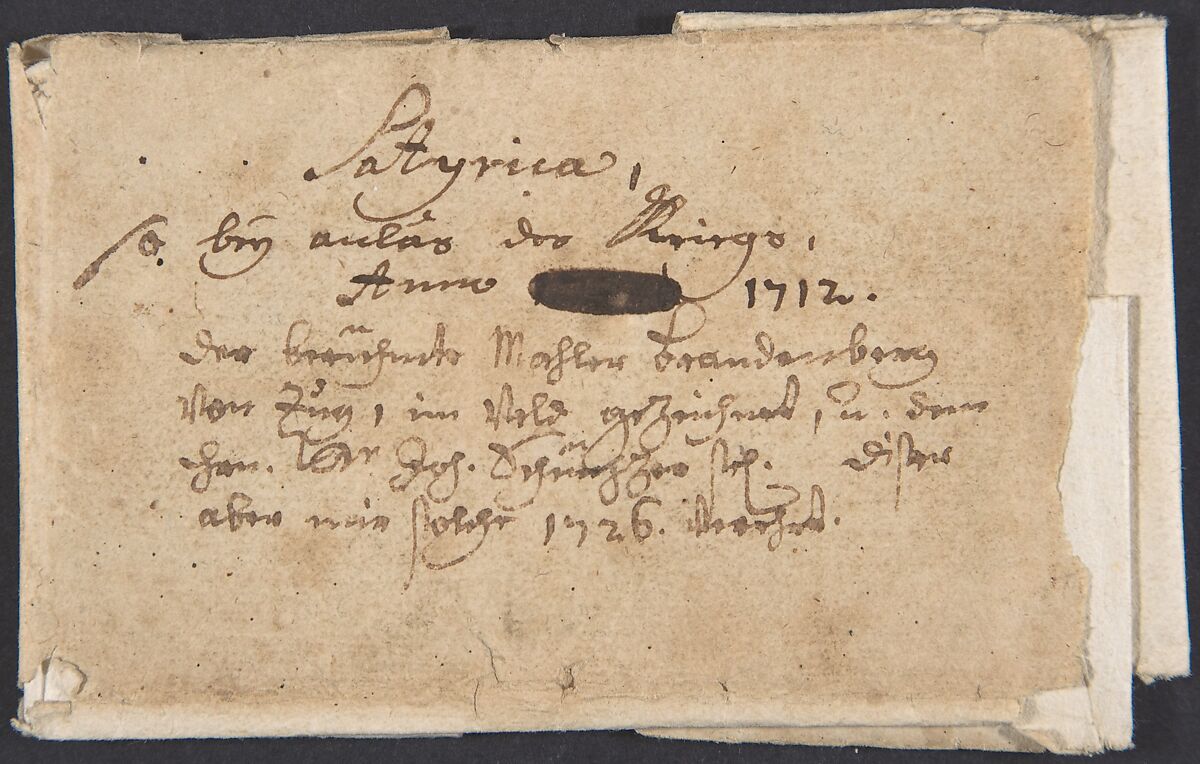 Satyrica,
so bey anläs des Kriegs,
Anno 1712.
der berühmte Mahler brandenberg
von Zug, im Veld gezeichnet, u. dem
Joh. Scheüchzer sel. diser
aber mir solche 1726. verehrt.